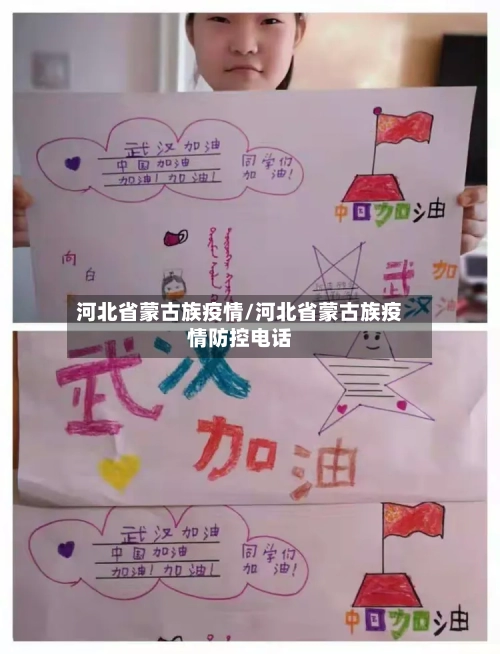 武汉加油
中国加油
加油！加油！
同学们
加油！
中国加油
向
白
武
汉
河北省蒙古族疫情/河北省蒙古族疫
情防控电话
武汉
加油
武汉加油
中国加油
加油！加油！
同学们
加油！
中国加油